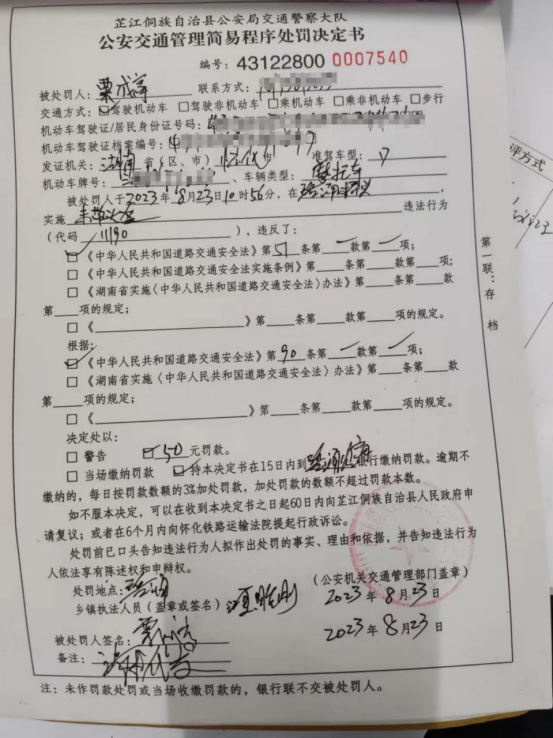 芷江侗族自治县公安局交通警察大队
公安交通管理简易程序处罚决定书
编号：43122800 0007540
被处罚人： 联系方式：
交通方式：☑驾驶机动车 □驾驶非机动车 □乘机动车 □乘非机动车 □步行
机动车驾驶证/居民身份证号码：
机动车驾驶证档案编号：
发证机关：湖南省（区、市） 市 准驾车型：D
机动车牌号： 、车辆类型：摩托车
被处罚人于2023年8月23日10时56分，在
实施 违法行为
（代码 11190 ），违反了：
☑《中华人民共和国道路交通安全法》第51条第一款第一项；
□《中华人民共和国道路交通安全法实施条例》第 条第 款第 项；
□《湖南省实施〈中华人民共和国道路交通安全法〉办法》第 条第 款
第 项的规定；
□《 》第 条第 款第 项的规定。
根据：
☑《中华人民共和国道路交通安全法》第90条第一款第一项；
□《湖南省实施〈中华人民共和国道路交通安全法〉办法》第 条第 款
第 项的规定；
□《 》第 条第 款第 项的规定。
决定处以：
□ 警告 ☑50元罚款。
□ 当场缴纳罚款 ☑持本决定书在15日内到 银行缴纳罚款。逾期不
缴纳的，每日按罚款数额的3%加处罚款，加处罚款的数额不超过罚款本数。
如不服本决定，可以在收到本决定书之日起60日内向芷江侗族自治县人民政府申
请复议；或者在6个月内向怀化铁路运输法院提起行政诉讼。
处罚前已口头告知违法行为人拟作出处罚的事实、理由和依据，并告知违法行为
人依法享有陈述权和申辩权。
处罚地点： （公安机关交通管理部门盖章）
乡镇执法人员（盖章或签名） 2023年8月23日
被处罚人签名： 2023年8月23日
备注：
注：未作罚款处罚或当场收缴罚款的，银行联不交被处罚人。
第一联：存档